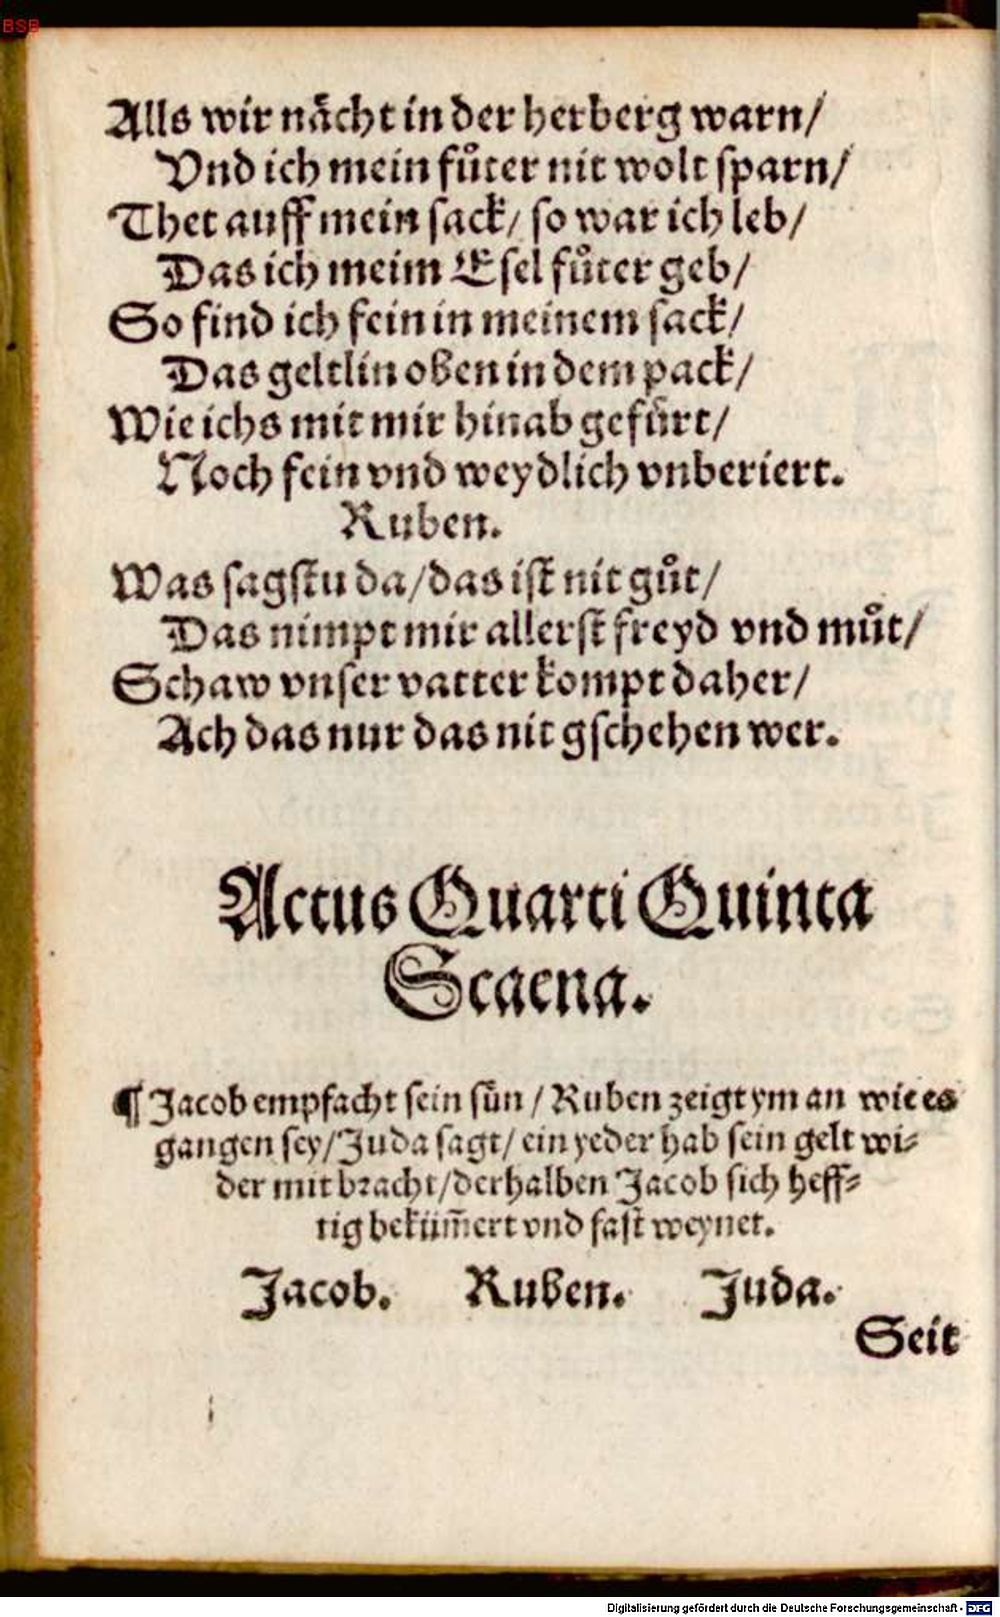 BSB
Alls wir nächt in der herberg warn/
Vnd ich mein fůter nit wolt sparn/
Thet auff mein sack/ so war ich leb/
Das ich meim Esel fůter geb/
So find ich fein in meinem sack/
Das geltlin oben in dem pack/
Wie ichs mit mir hinab gefürt/
Noch fein vnd weydlich vnberiert.
Ruben.
Was sagstu da/das ist nit gůt/
Das nimpt mir allerst freyd vnd můt/
Schaw vnser vatter kompt daher/
Ach das nur das nit gschehen wer.
Actus Quarti Quinta
Scaena.
¶ Jacob empfacht sein sün / Ruben zeigt ym an wie es
gangen sey/Juda sagt/ ein yeder hab sein gelt wi⸗
der mit bracht/derhalben Jacob sich heff⸗
tig beküm̃ert vnd fast weynet.
Jacob. Ruben. Juda.
Seit
Digitalisierung gefördert durch die Deutsche Forschungsgemeinschaft - DFG